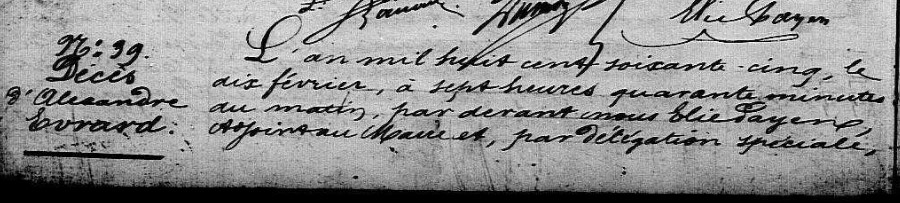 Elie Payen
N.º 39.
Décès
d'Alexandre
Evrard.
L'an mil huit cent soixante-cinq, le
dix février, à sept heures quarante minutes
du matin, par devant nous Elie Payen,
Adjoint au Maire et, par délégation spéciale,